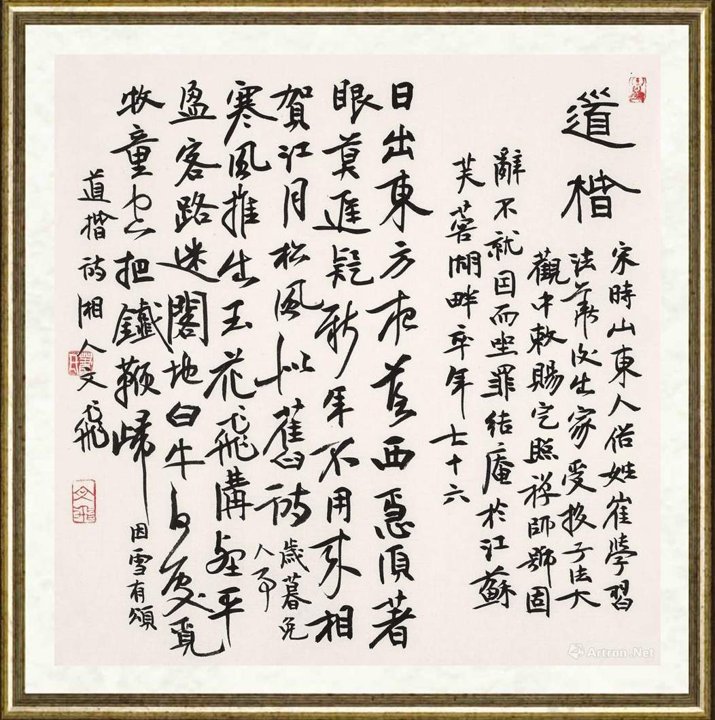 道楷
宋時山東人俗姓崔學習
法華後出家受投子法大
觀中敕賜定照禪師號固
辭不就因而坐罪結庵於江蘇
芙蓉湖畔卒年七十六
日出東方夜落西急須著
眼莫遲疑新年不用來相
賀江月松風似舊時
歲暮免
人事
寒風推出玉花飛溝壑平
盈客路迷闊地白牛何處覓
牧童空把鐵鞭歸
因雪有頌
道楷詩湘人文飛
Artron.Net